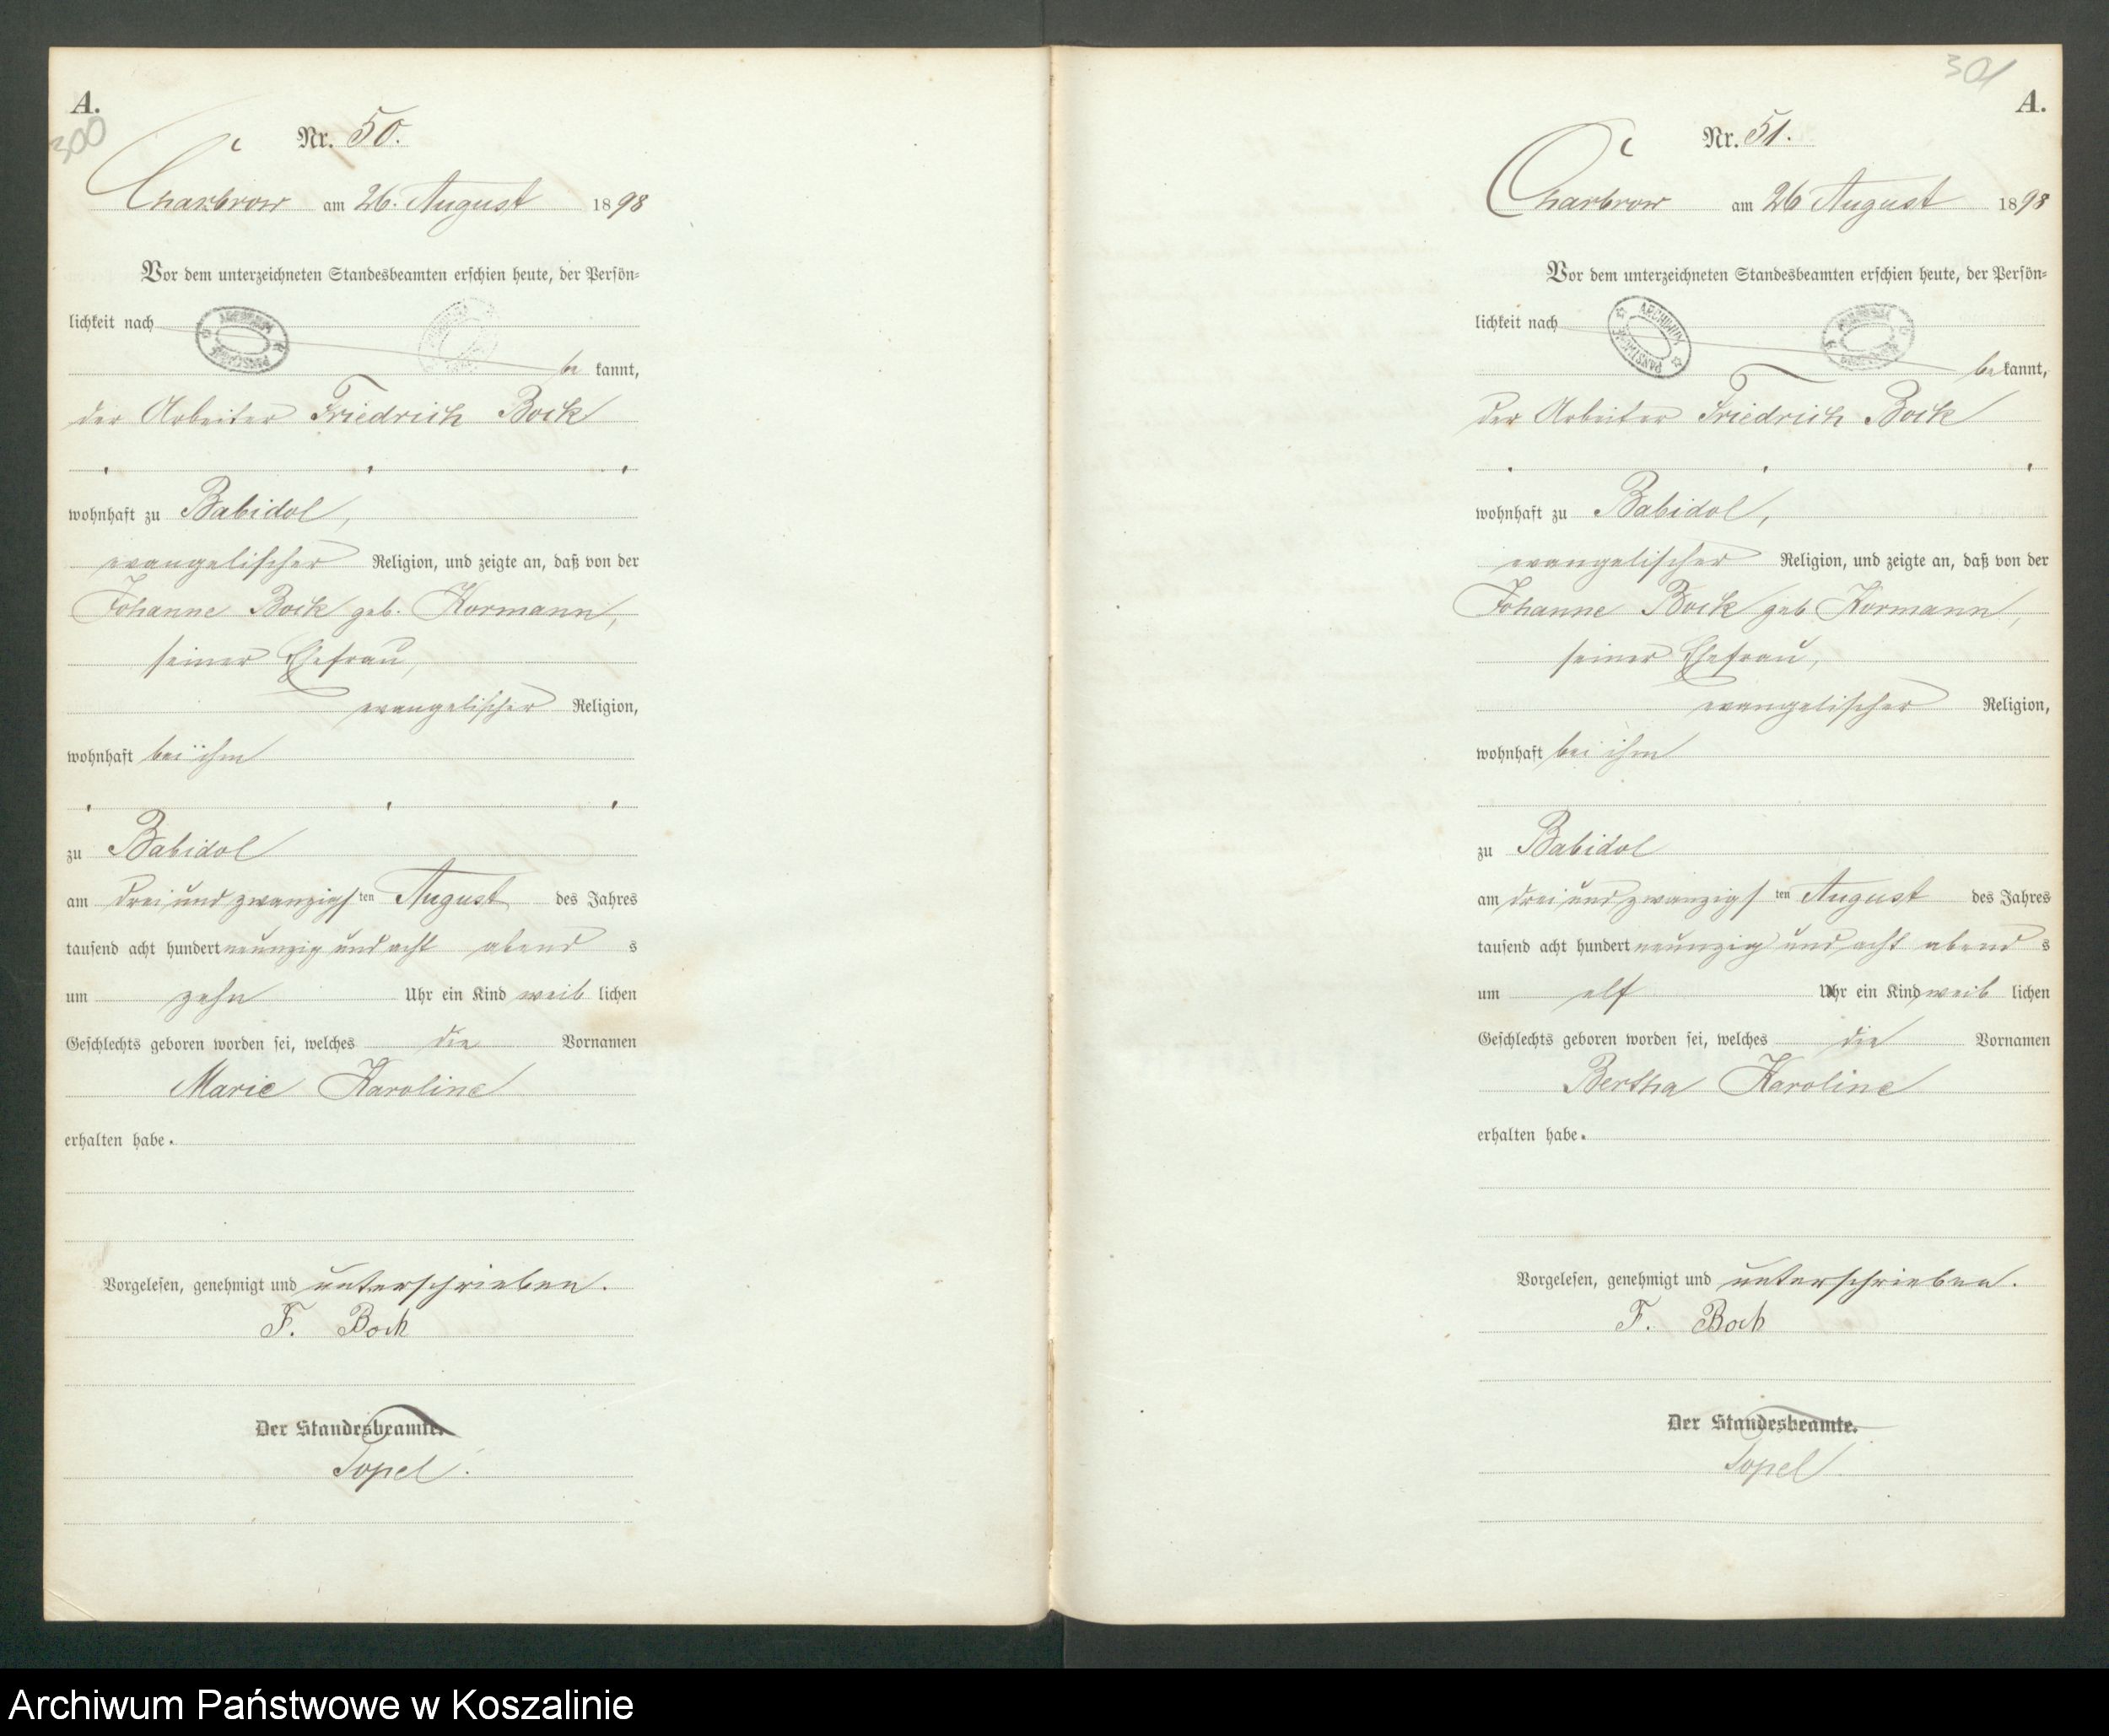 A.
300
Nr. 50.
Charbrow am 26. August 1898
Vor dem unterzeichneten Standesbeamten erschien heute, der Persön-
lichkeit nach
ARCHIWUM PAŃSTWOWE
be kannt,
der Arbeiter Friedrich Bock
wohnhaft zu Babidol,
evangelischer Religion, und zeigte an, daß von der
Johanne Bock geb. Kormann,
seiner Ehefrau,
evangelischer Religion,
wohnhaft bei ihm
zu Babidol
am drei und zwanzigsten August des Jahres
tausend acht hundert neunzig und acht abend s
um zehn Uhr ein Kind weib lichen
Geschlechts geboren worden sei, welches die Vornamen
Marie Karoline
erhalten habe.
Vorgelesen, genehmigt und unterschrieben.
F. Bock
Der Standesbeamte.
Topel.
301
A.
Nr. 51.
Charbrow am 26 August 1898
Vor dem unterzeichneten Standesbeamten erschien heute, der Persön-
lichkeit nach
ARCHIWUM PAŃSTWOWE
be kannt,
der Arbeiter Friedrich Bock
wohnhaft zu Babidol,
evangelischer Religion, und zeigte an, daß von der
Johanne Bock geb Kormann,
seiner Ehefrau,
evangelischer Religion,
wohnhaft bei ihm
zu Babidol
am drei und zwanzigsten August des Jahres
tausend acht hundert neunzig und acht abend s
um elf Uhr ein Kind weib lichen
Geschlechts geboren worden sei, welches die Vornamen
Bertha Karoline
erhalten habe.
Vorgelesen, genehmigt und unterschrieben.
F. Bock
Der Standesbeamte.
Topel.
Archiwum Państwowe w Koszalinie